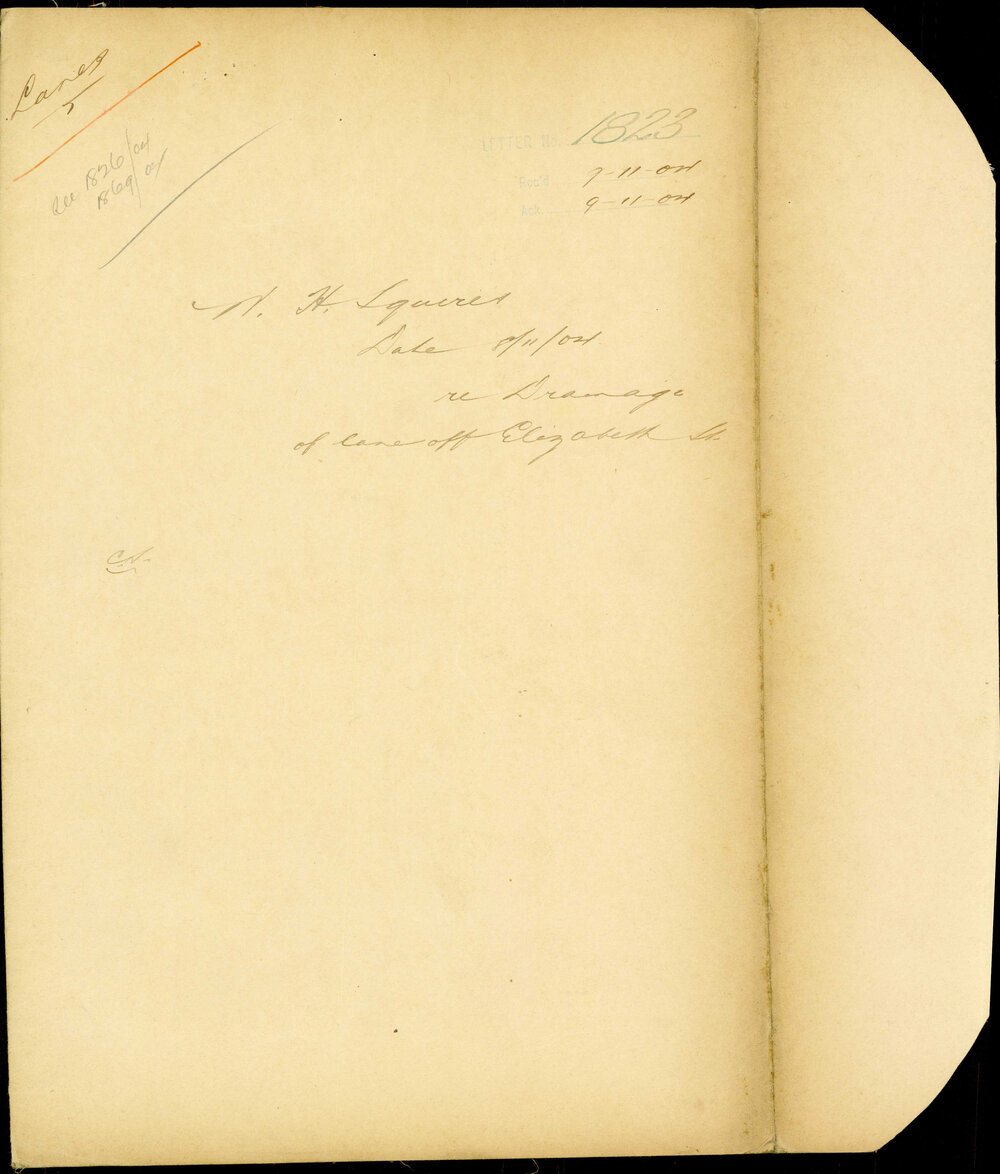 Lanes
see 1826/04
1869/04
LETTER No. 1823
Rec'd 7-11-04
Ack. 9-11-04
W. H. Squires
Date 8/11/04
re Drainage
of lane off Elizabeth St.